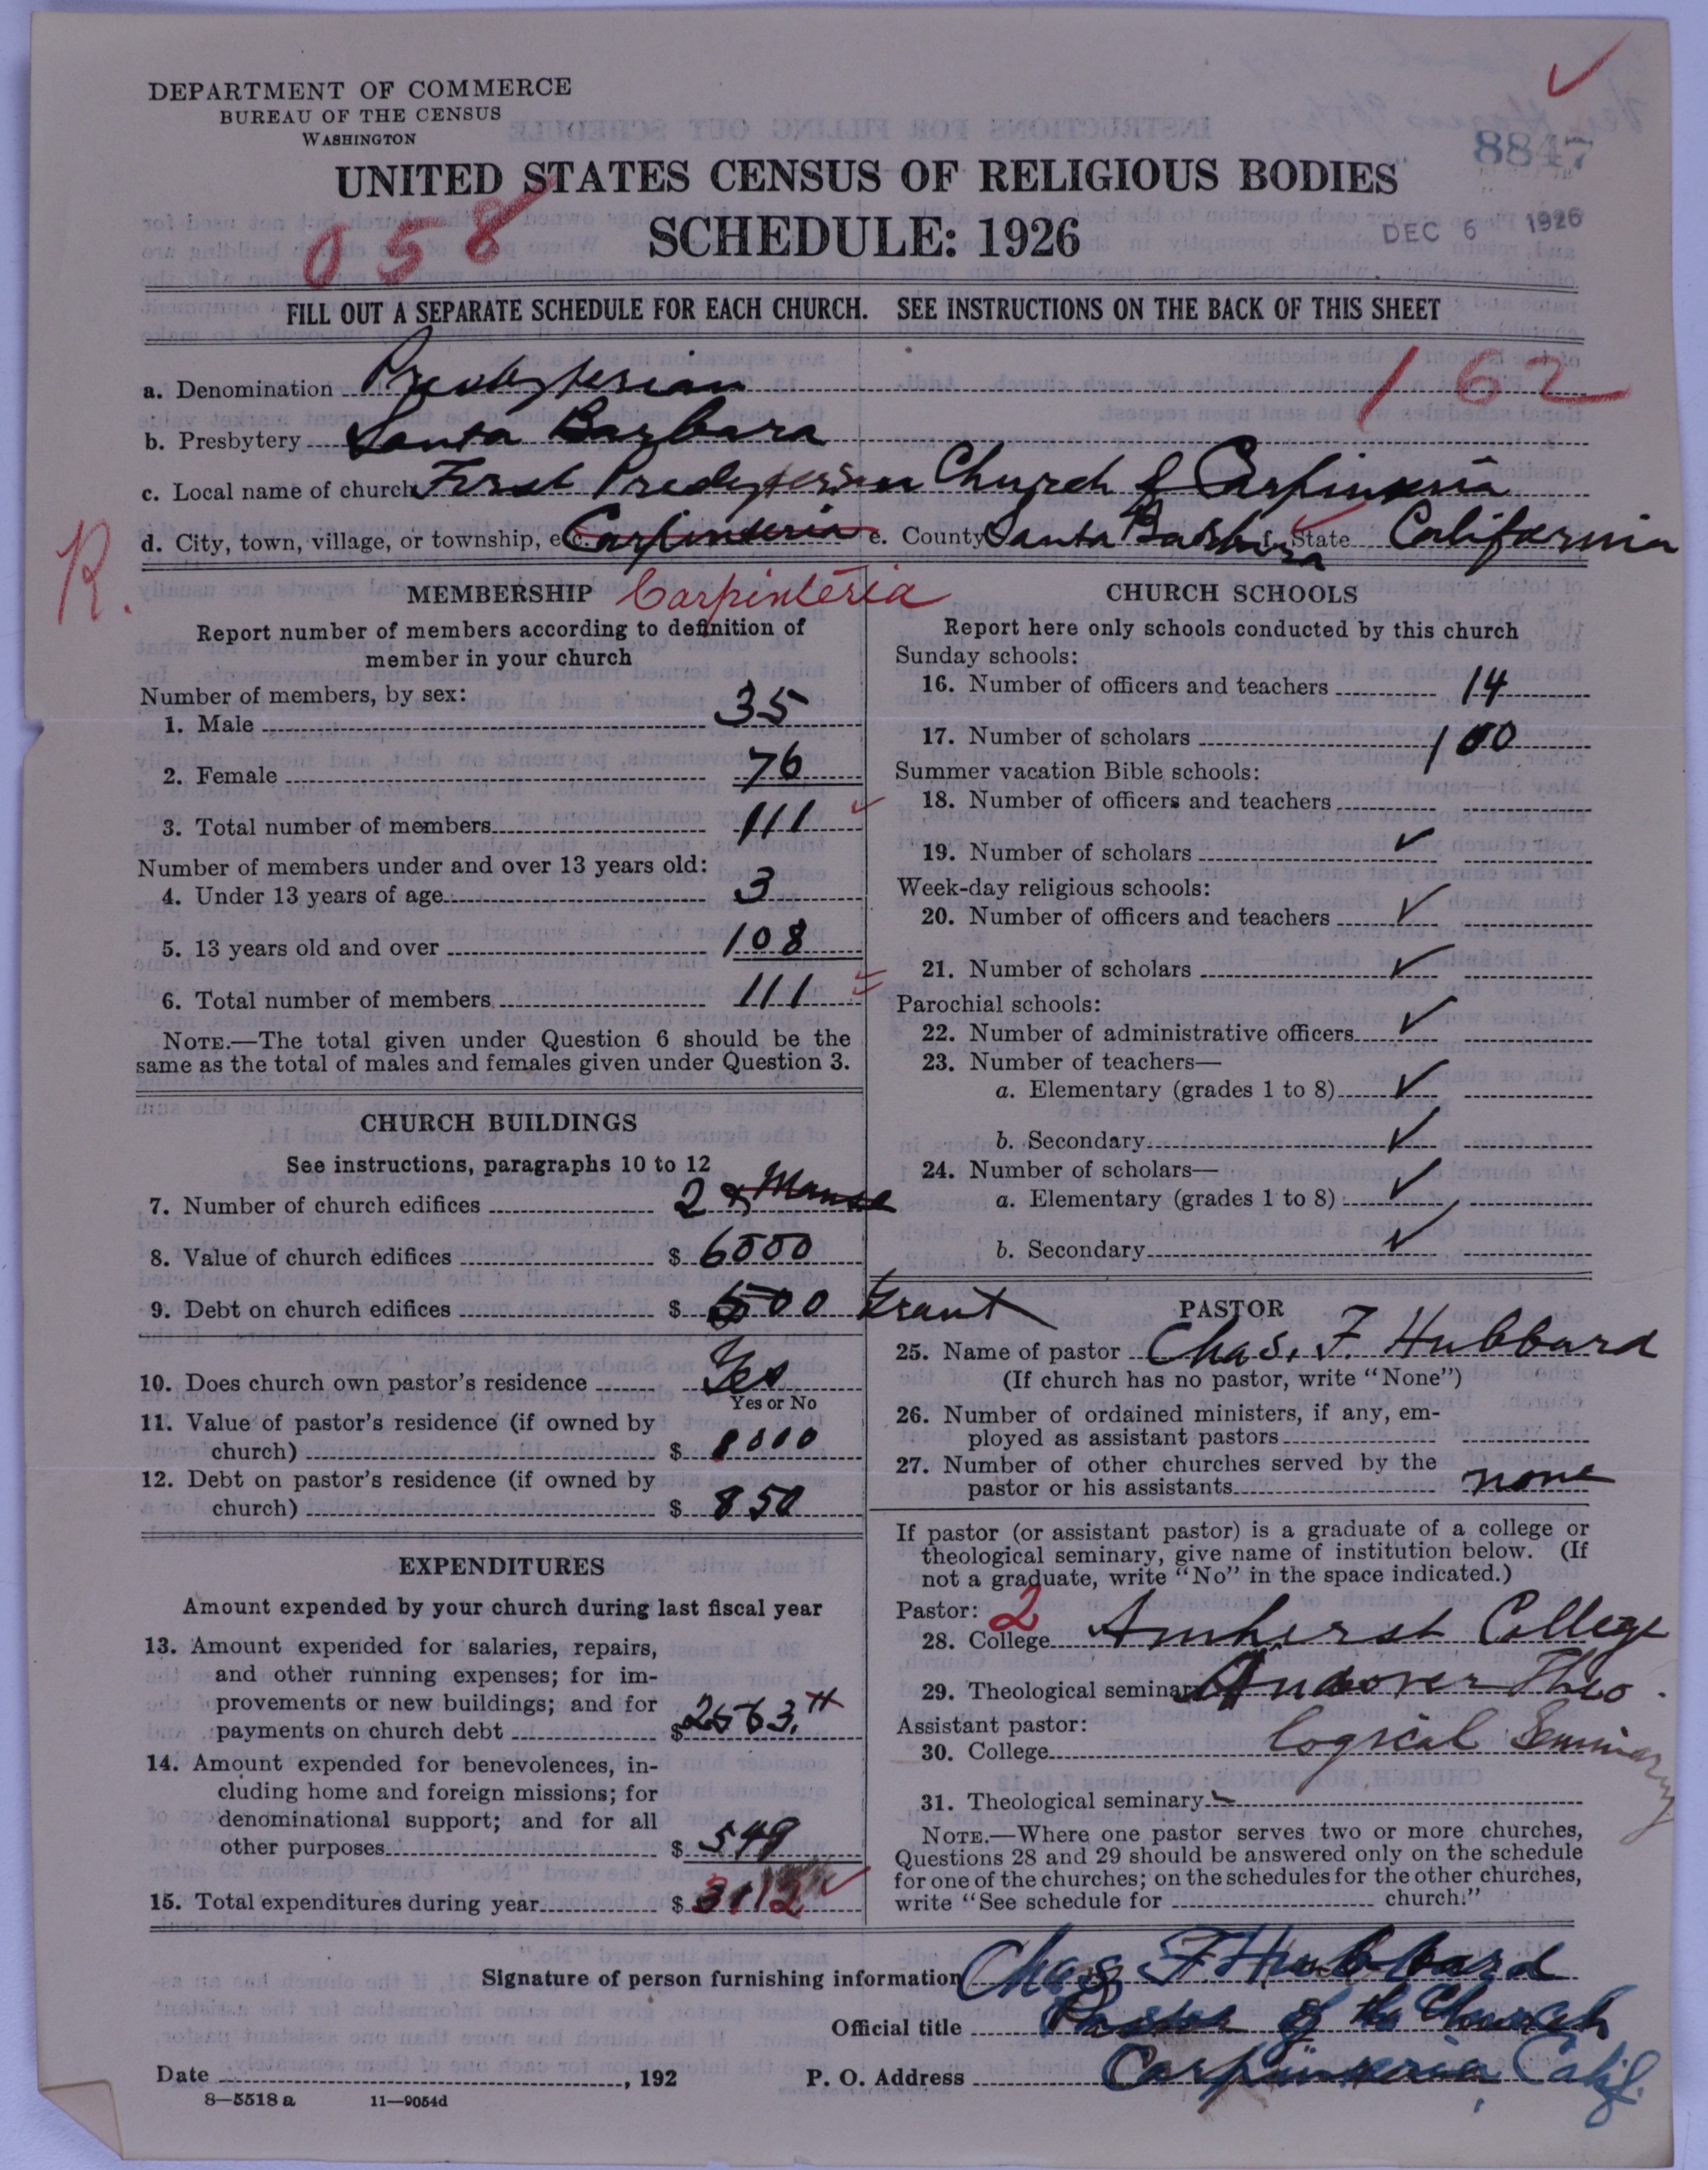 DEPARTMENT OF COMMERCE
BUREAU OF THE CENSUS
WASHINGTON
8847
UNITED STATES CENSUS OF RELIGIOUS BODIES
SCHEDULE: 1926
DEC 6 1926
058
FILL OUT A SEPARATE SCHEDULE FOR EACH CHURCH. SEE INSTRUCTIONS ON THE BACK OF THIS SHEET
162
a. Denomination Presbyterian
b. Presbytery Santa Barbara
c. Local name of church First Presbyterian Church of Carpinteria
d. City, town, village, or township, etc. Carpinteria e. County Santa Barbara f. State California
R.
MEMBERSHIP Carpinteria
Report number of members according to definition of
member in your church
Number of members, by sex:
1. Male 35
2. Female 76
3. Total number of members 111
Number of members under and over 13 years old:
4. Under 13 years of age 3
5. 13 years old and over 108
6. Total number of members 111
NOTE.—The total given under Question 6 should be the
same as the total of males and females given under Question 3.
CHURCH BUILDINGS
See instructions, paragraphs 10 to 12
7. Number of church edifices 2 & Manse
8. Value of church edifices $ 6000
9. Debt on church edifices $ 500 Grant
10. Does church own pastor's residence Yes
Yes or No
11. Value of pastor's residence (if owned by
church) $
12. Debt on pastor's residence (if owned by
church) $ 850
EXPENDITURES
Amount expended by your church during last fiscal year
13. Amount expended for salaries, repairs,
and other running expenses; for im-
provements or new buildings; and for
payments on church debt $
14. Amount expended for benevolences, in-
cluding home and foreign missions; for
denominational support; and for all
other purposes $ 549
15. Total expenditures during year $ 3112
CHURCH SCHOOLS
Report here only schools conducted by this church
Sunday schools:
16. Number of officers and teachers 14
17. Number of scholars 100
Summer vacation Bible schools:
18. Number of officers and teachers
19. Number of scholars ✓
Week-day religious schools:
20. Number of officers and teachers ✓
21. Number of scholars ✓
Parochial schools:
22. Number of administrative officers ✓
23. Number of teachers—
a. Elementary (grades 1 to 8) ✓
b. Secondary ✓
24. Number of scholars—
a. Elementary (grades 1 to 8) ✓
b. Secondary ✓
PASTOR
25. Name of pastor Chas. F. Hubbard
(If church has no pastor, write "None")
26. Number of ordained ministers, if any, em-
ployed as assistant pastors
27. Number of other churches served by the
pastor or his assistants none
If pastor (or assistant pastor) is a graduate of a college or
theological seminary, give name of institution below. (If
not a graduate, write "No" in the space indicated.)
Pastor: 2
28. College Amherst College
29. Theological seminary Andover Theo
Assistant pastor: logical Seminary
30. College
31. Theological seminary
NOTE.—Where one pastor serves two or more churches,
Questions 28 and 29 should be answered only on the schedule
for one of the churches; on the schedules for the other churches,
write "See schedule for church."
Signature of person furnishing information Chas F Hubbard
Official title Pastor of the Church
Date , 192 P. O. Address Carpinteria Calif.
8—5518 a 11—9054d